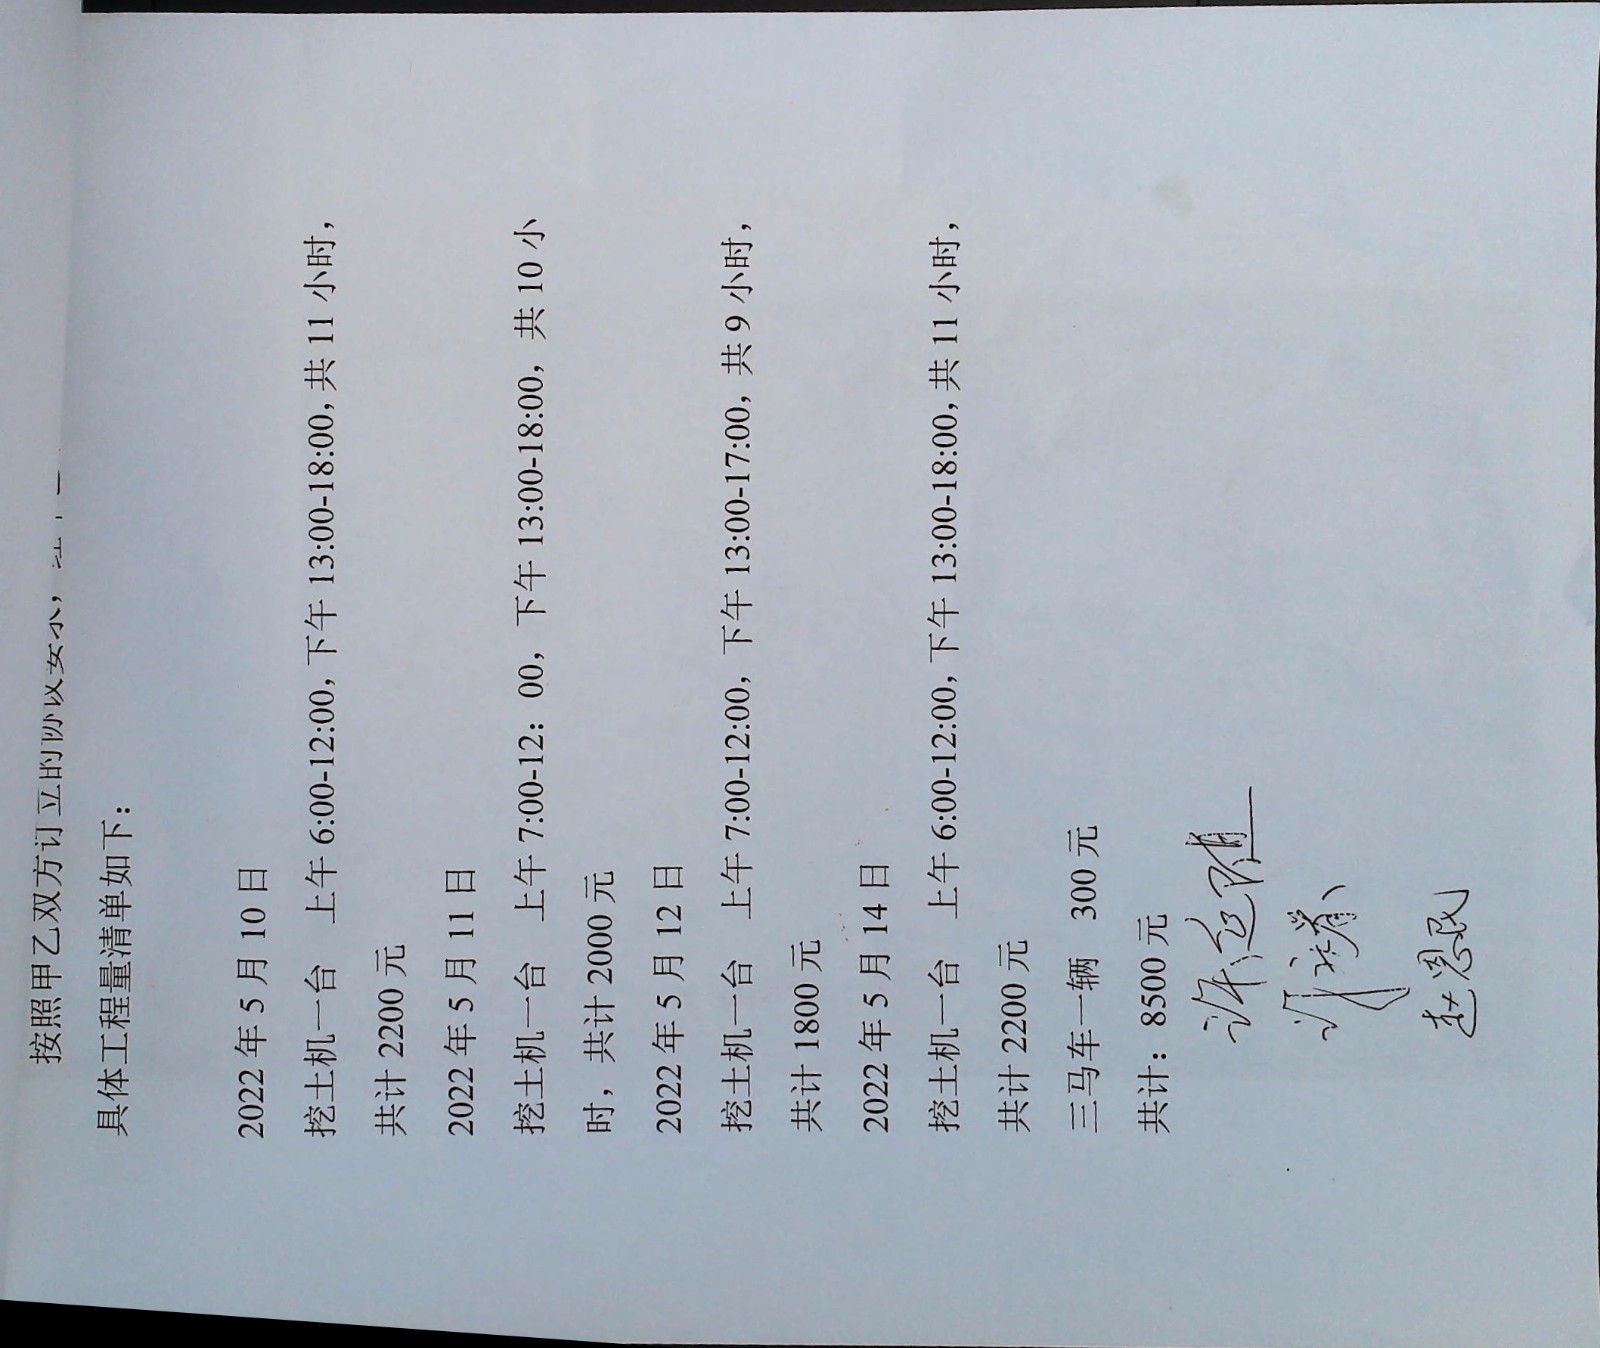 按照甲乙双方订立的协议要求，
具体工程量清单如下：
2022 年 5 月 10 日
挖土机一台 上午 6:00-12:00, 下午 13:00-18:00, 共 11 小时，
共计 2200 元
2022 年 5 月 11 日
挖土机一台 上午 7:00-12：00，下午 13:00-18:00，共 10 小
时，共计 2000 元
2022 年 5 月 12 日
挖土机一台 上午 7:00-12:00，下午 13:00-17:00，共 9 小时，
共计 1800 元
2022 年 5 月 14 日
挖土机一台 上午 6:00-12:00, 下午 13:00-18:00, 共 11 小时，
共计 2200 元
三马车一辆 300 元
共计：8500 元
许
许
赵恩民